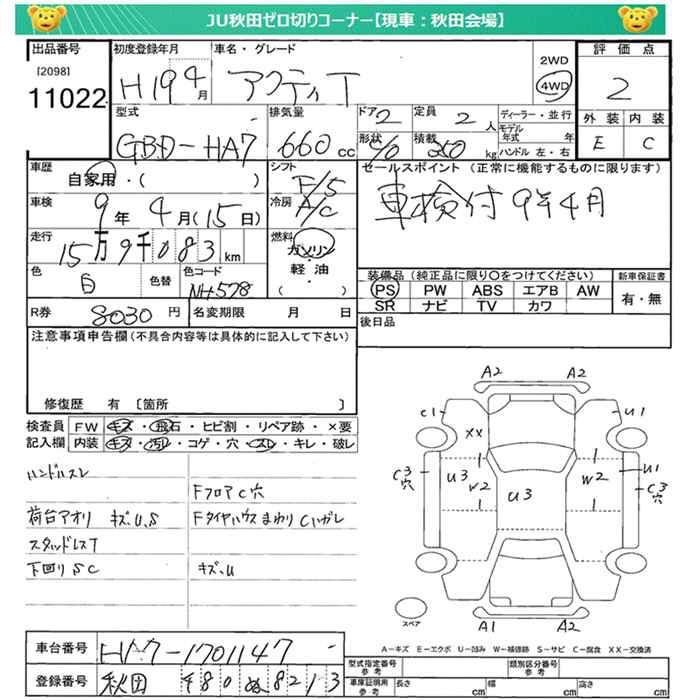 JU秋田ゼロ切りコーナー【現車：秋田会場】
出品番号
[2098]
11022
初度登録年月
H19 4月
車名・グレード
アクティT
2WD
4WD
評価点
2
外装 内装
E C
型式
GBD-HA7
排気量
660cc
ドア 2
形状 %
定員 2人
積載 350kg
ディーラー・並行
モデル年式 年
ハンドル 左・右
車歴
自家用・( )
シフト
F/5
セールスポイント (正常に機能するものに限ります)
車検付 9年4月
車検
9年4月(15日)
冷房
A/C
走行
15万9千083km
燃料
ガソリン
・
軽油
・
( )
色
白
色替
色コード
NH578
装備品 (純正品に限り○をつけてください)
PS PW ABS エアB AW
SR ナビ TV カワ
新車保証書
有・無
R券 8030円 名変期限 月 日
後日品
注意事項申告欄(不具合内容等は具体的に記入して下さい)
修復歴 有 〔箇所 〕
検査員記入欄
FW キズ・飛石・ヒビ割・リペア跡・×要
内装 キズ・汚れ・コゲ・穴・スレ・キレ・破レ
ハンドルスレ
FフロアC穴
荷台アオリ キズ.U.S
FタイヤハウスまわりCハガレ
スタッドレスT
下回りSC
キズ.U
A2 A2
C1 U1
XX
C3穴 U3 W2 U3 W2 U1
C3穴
スペア
A1 A2
A-キズ E-エクボ U-凹み W-補修跡 S-サビ C-腐食 XX-交換済
車台番号
HA7-1701147
登録番号
秋田 480 ぬ 8213
型式指定番号 参考
類別区分番号 参考
車庫証明用 参考
長さ cm 幅 cm 高さ cm